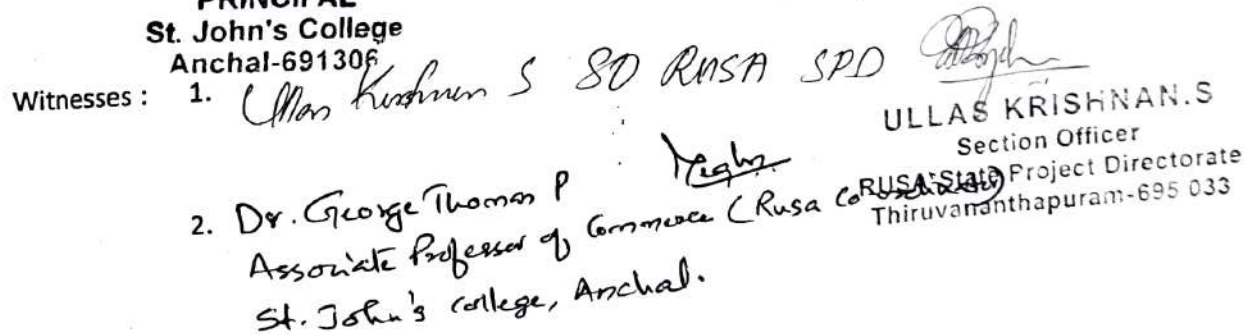 PRINCIPAL
St. John's College
Anchal-691306
Witnesses : 1. Ullas Krishnan S SO RUSA SPD
ULLAS KRISHNAN.S
Section Officer
RUSA-State Project Directorate
Thiruvananthapuram-695 033
2. Dr. George Thomas P
Associate Professor of Commerce (Rusa Co-ordinator)
St. John's college, Anchal.